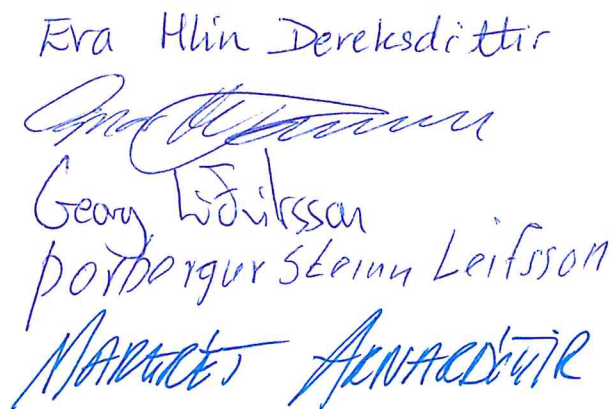 Eva Hlín Dereksdóttir
Georg
Þorbergur Steinn Leifsson
MARGRÉT ARNARDÓTTIR